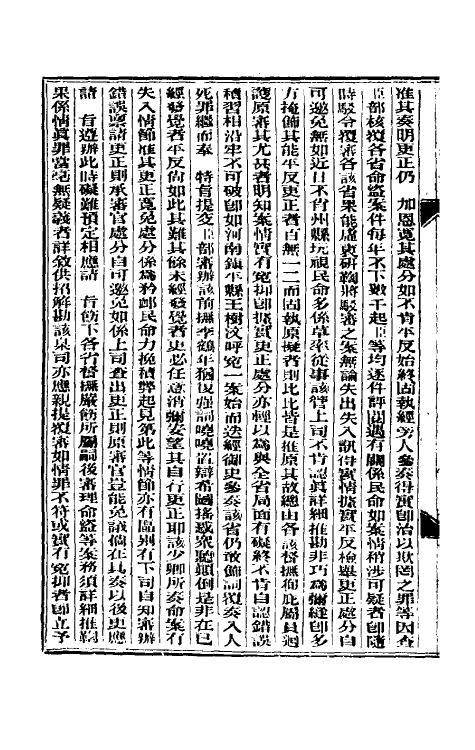 准其奏明更正仍 加恩寬其處分如不肯平反始終固執經旁人參奏得實卽治以欺罔之罪等因查
臣部核覆各省命盜案件每年不下數千起臣等均逐件評閱遇有關係民命如案情稍涉可疑者卽隨
時駁令覆審各該省果能虛衷研鞫將駁審之案無論失出失入訊得實情據實平反檢舉更正處分自
可邀免無如近日不肖州縣玩視民命多係草率從事該管上司不肯認眞詳細推勘非巧爲彌縫卽多
方掩飾其能平反更正者百無一二而固執原擬者則比比皆是推原其故總由各該督撫徇庇屬員迴
護原審其尤甚者明知案情實有冤抑卽據實更正處分亦輕以爲與全省局面有礙終不肯自認錯誤
積習相沿牢不可破卽如河南鎭平縣王樹汶呼冤一案始而迭經御史參奏該省仍敢飾詞覆奏入人
死罪繼而奉 特旨提交臣部審辦該前撫李鶴年猶復强詞嘵嘵置辯希圖搖惑眾聽顚倒是非在已
經發覺者平反尙如此其難其餘未經發覺者更必任意消彌安望其自行更正耶該少卿所奏命案有
失入情節准其更正寬免處分係爲矜䘏民命力挽積弊起見第此等情節亦有區別有下司自知審辦
錯誤稟請更正則承審官處分自可邀免如係上司查出更正則原審官豈能免議倘在具奏以後更應
請 旨遵辦此時礙難預定相應請 旨飭下各省督撫嚴飭所屬嗣後審理命盜等案務須詳細推鞫
果係情眞罪當毫無疑義者詳敘供招解勘該臬司亦應親提覆審如情罪不符或實有冤抑者卽立予